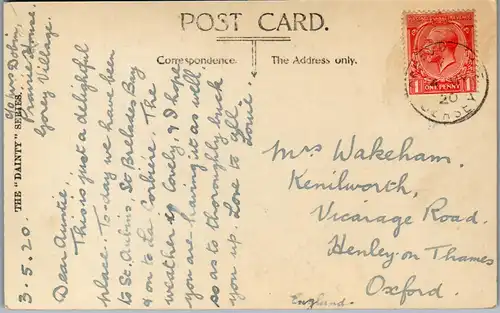 POST CARD.
Correspondence.
The Address only.
THE "DAINTY" SERIES.
ONE PENNY
20
JERSEY
Prairie House
Gorey Village.
3.5.20.
Dear Auntie,
This is just a delightful
place. To-day we have been
to St. Aubins, St Brelades Bay
& on to La Corbière. The
weather is lovely, & I hope
you are having it as well
so as to thoroughly buck
you up. Love to all,
Mrs Wakeham.
Kenilworth,
Vicarage Road.
Henley on Thames
Oxford.
England.